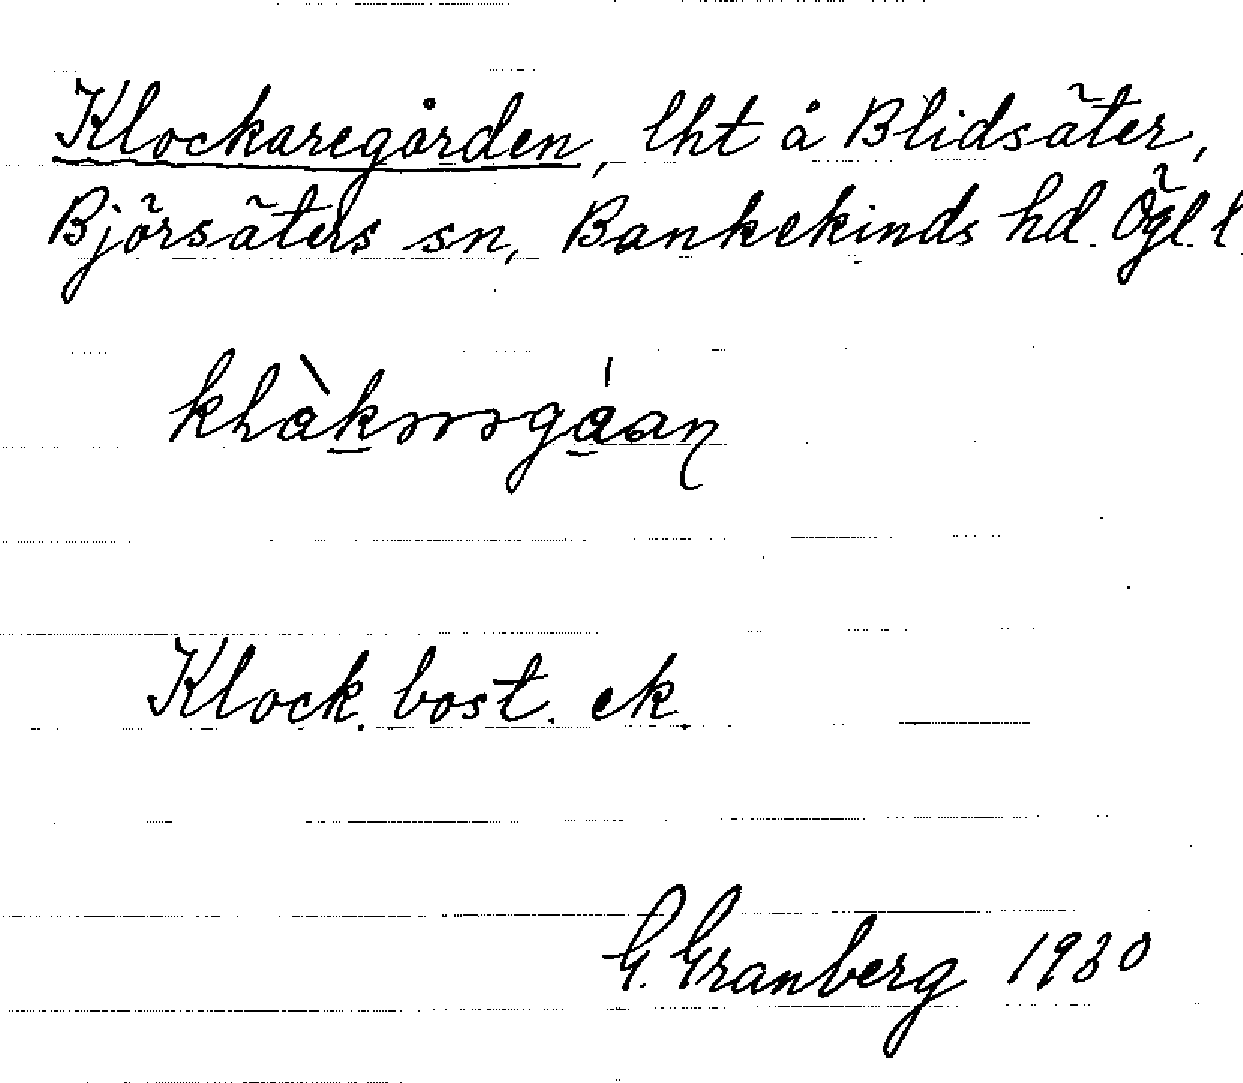 Klockaregården, lht å Blidsäter,
Björsäters sn, Bankekinds hd. Ögl. l
Klock. bost. ek.
G. Granberg 1930